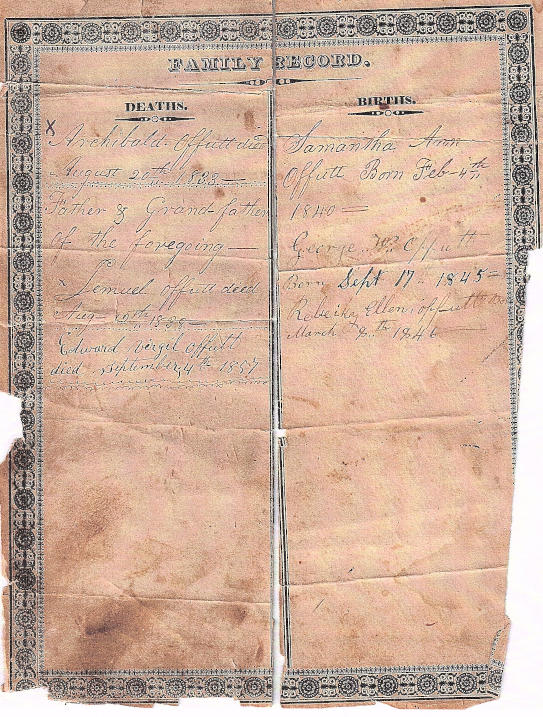 FAMILY RECORD.
DEATHS.
X
Archibald Offutt died
August 20th 1833
Father & Grand father
of the foregoing
Samuel offutt deed
Aug 19th
Edward virgel offutt
died September 4th 1857
BIRTHS.
Samantha Ann
Offutt Born Feb 4th
1840
George W. Offutt
Born Sept 17 1845
Ellen offutt
March 8th 1846